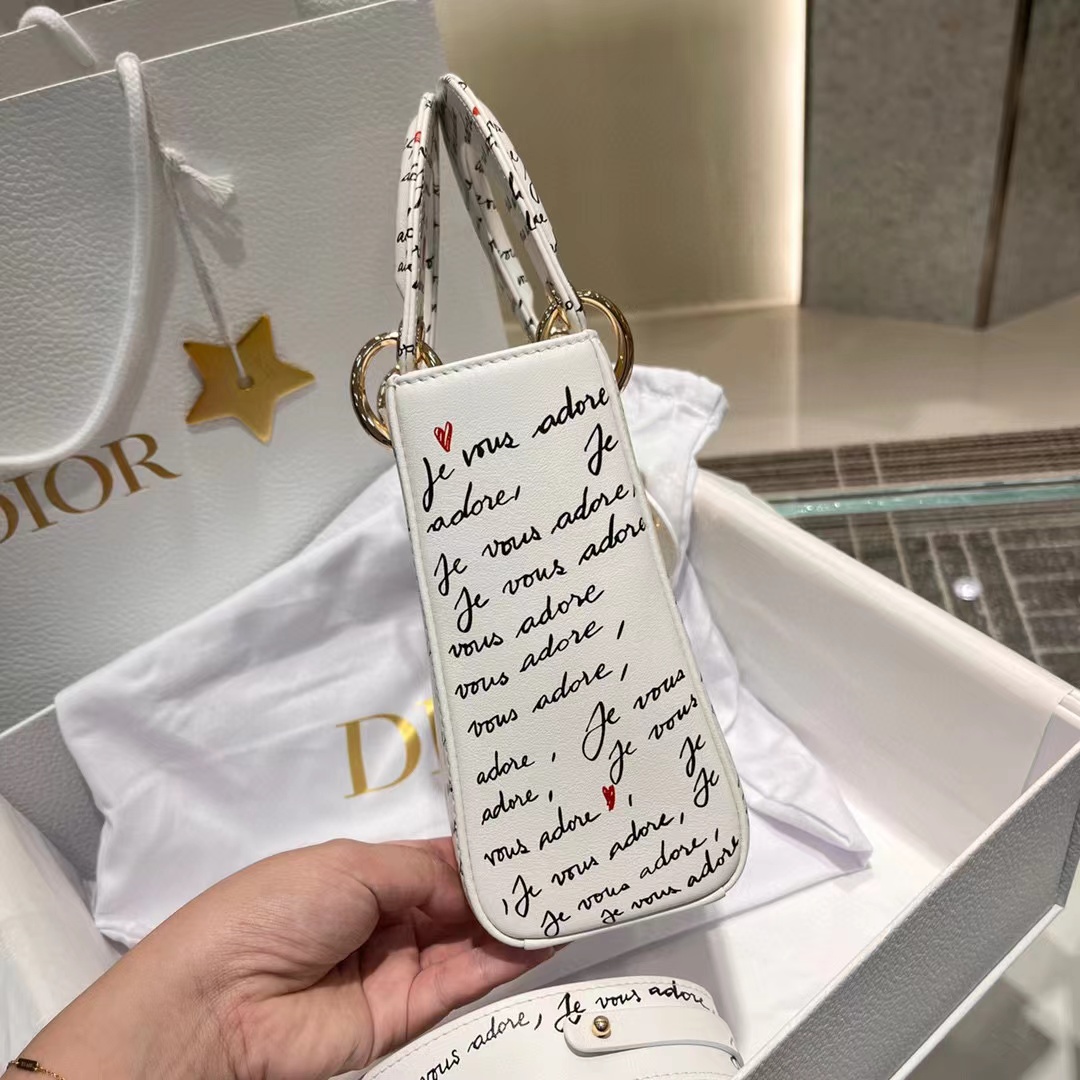 DIOR
Je vous adore
adore, Je
Je vous adore,
Je vous adore
vous adore
vous adore,
vous adore,
adore, Je vous
adore, Je vous
vous adore, Je
, Je vous adore, Je
Je vous adore,
Je vous adore
vous adore, Je vous adore